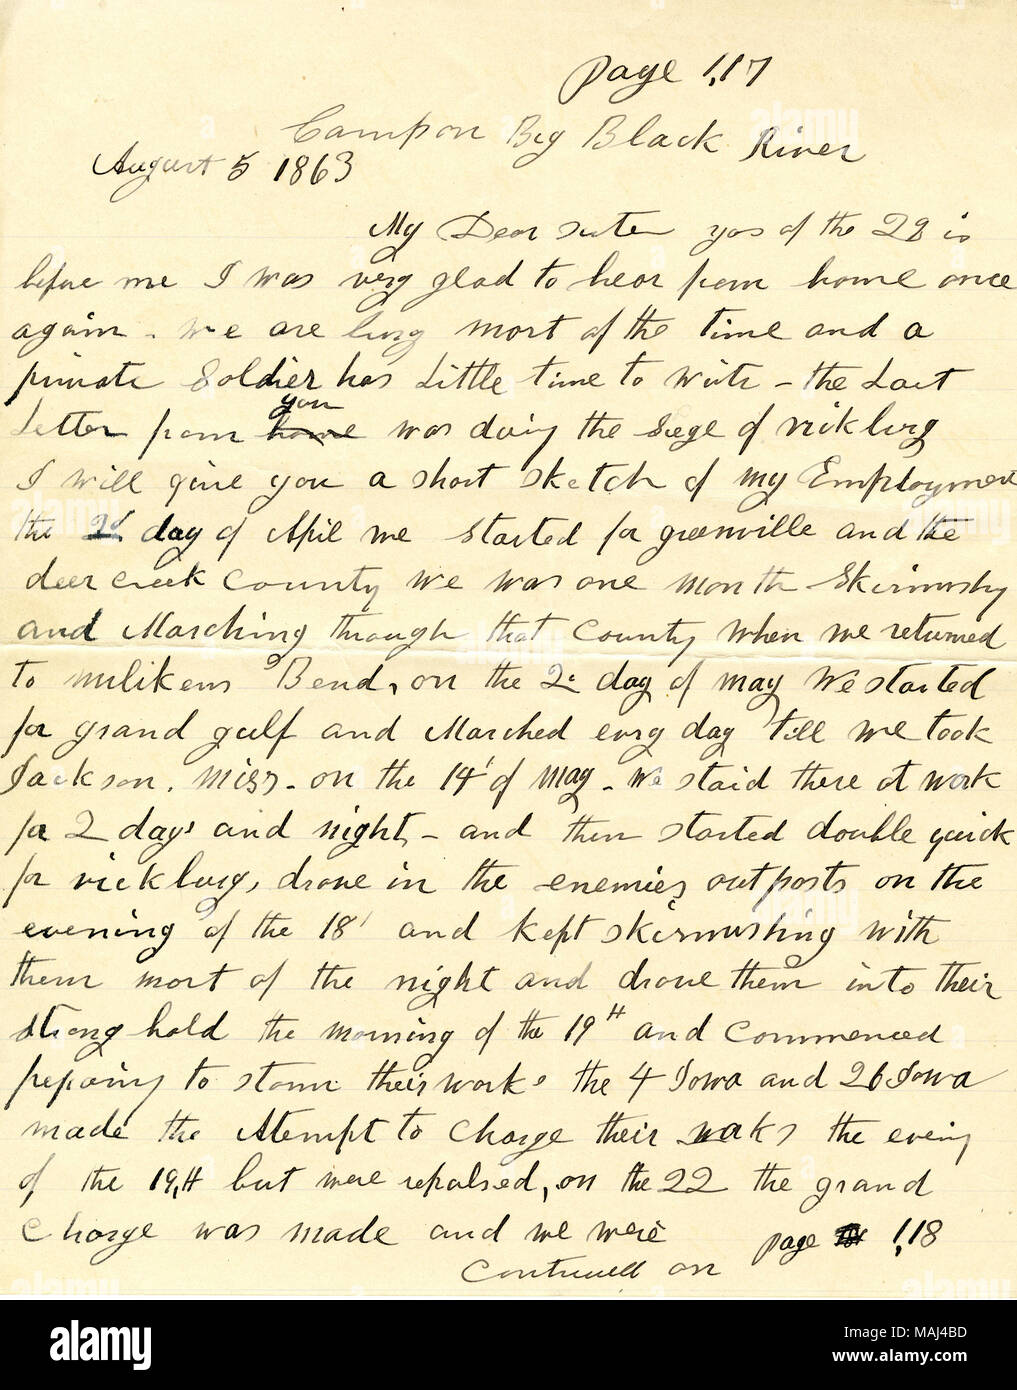 page 1,17
Camp on Big Black River
August 5 1863
My Dear sister yos of the 28 is
before me I was very glad to hear from home once
again - we are busy most of the time and a
private Soldier has Little time to write - the Last
you
Letter from home was during the Siege of vicksburg
I will give you a short sketch of my Employment
the 2d day of April we started for greenville and the
deer creek County we was one month Skirmushing
and Marching through that County when we returned
to milikens Bend, on the 2d day of may We started
for grand gulf and Marched evry day till we took
Jackson. miss. on the 14' of may - we staid there at work
for 2 days and night - and then started double quick
for vicksburg, drove in the enemies outposts on the
evening of the 18' and kept skirmushing with
them most of the night and drove them into their
strong hold the morning of the 19H and commenced
preparing to storm their works the 4 Iowa and 26 Iowa
made the Atempt to Charge their works the evening
of the 19,H but were repulsed, on the 22 the grand
Charge was made and we were page 1,18
Continued on
alamy
Image ID: MAJ4BD
www.alamy.com